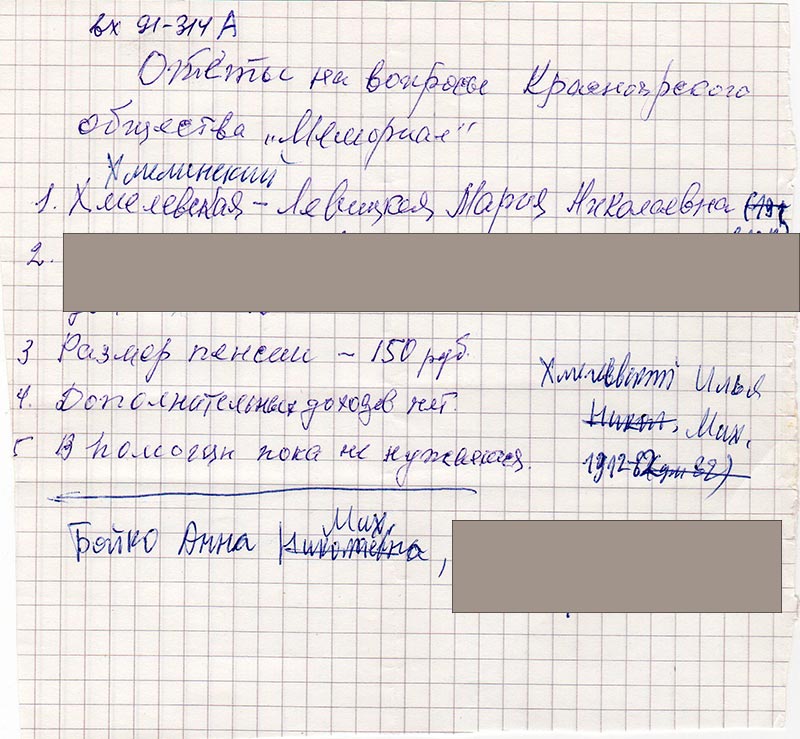 вх 91-314 А
Ответы на вопросы Красноярского
общества „Мемориал"
Хмелинский
1. Хмелевская - Левицкая Мария Николаевна
2.
3 Размер пенсии - 150 руб.
4. Дополнительных доходов нет.
5 В помощи пока не нуждаюсь.
Илья
Никол. Мих.
1912-82
Мих.
Бойко Анна Николаевна,